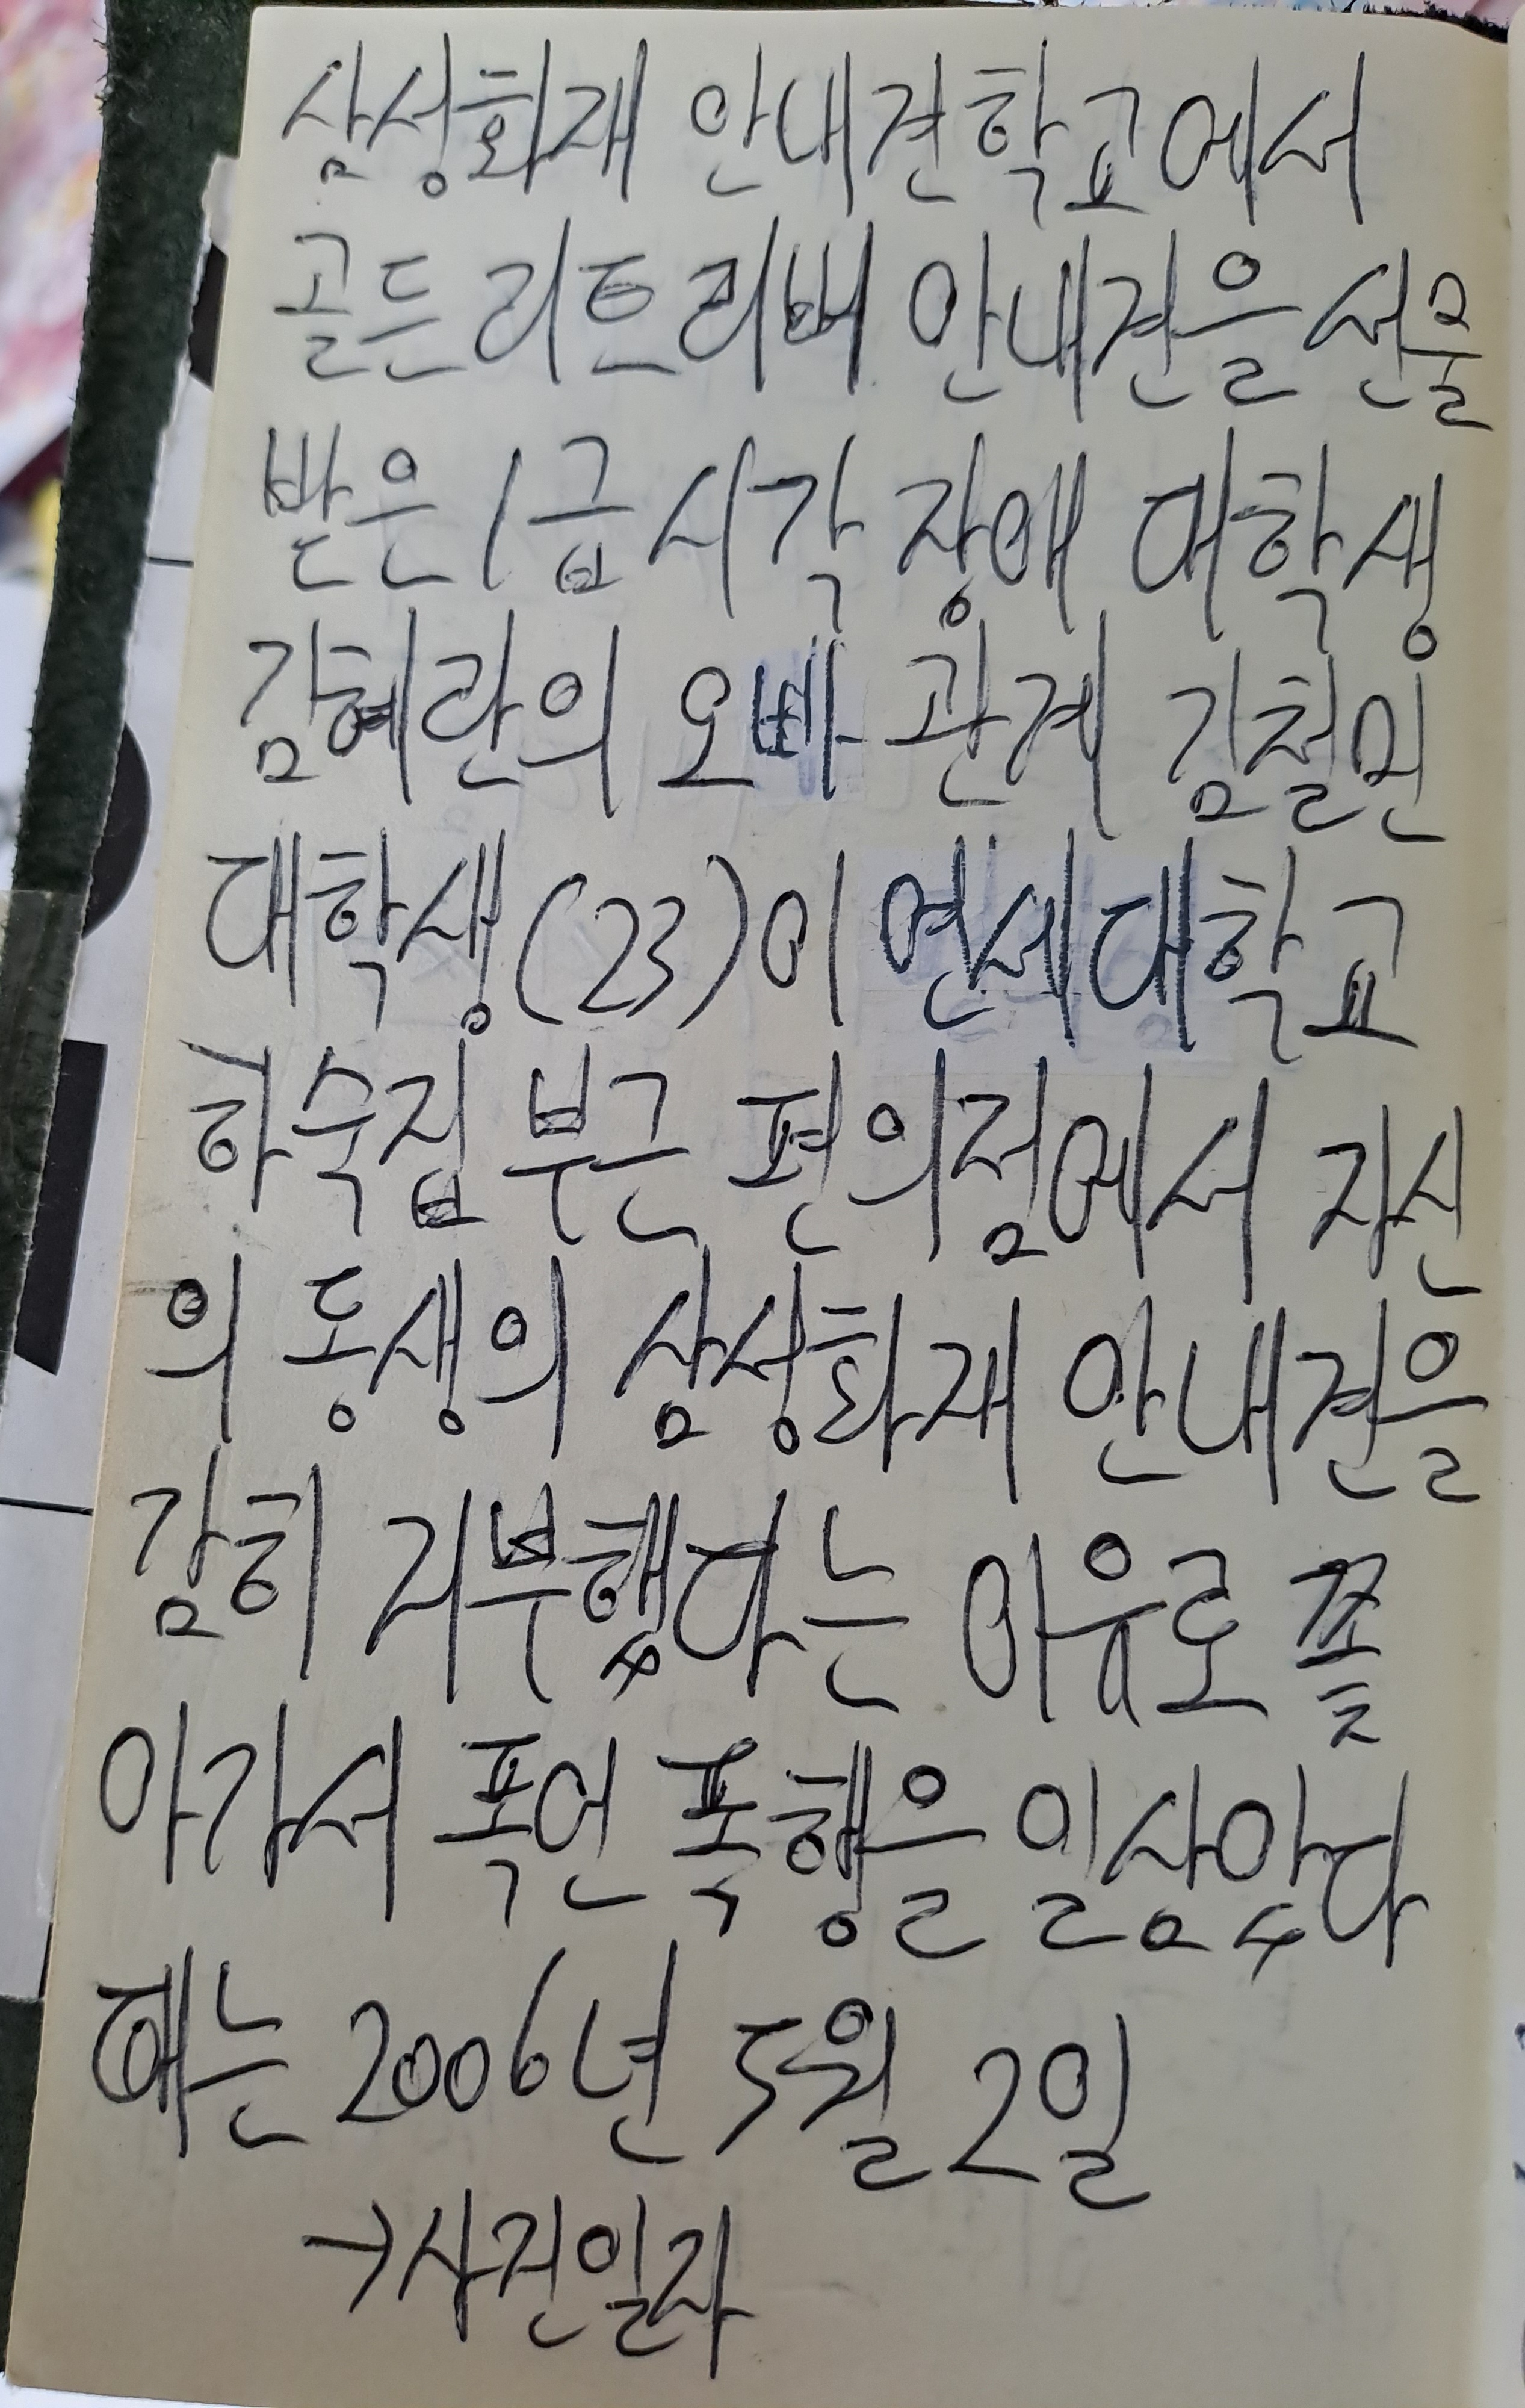 삼성화재 안내견학교에서
골든리트리버 안내견을 선물
받은 1급 시각 장애 여학생
김혜란의 오빠 관계 김철민
대학생(23)이 연세대학교
하숙집 부근 편의점에서 자신
의 동생의 삼성화재 안내견을
감히 거부했다는 이유로 쫒
아가서 폭언 폭행을 일삼았다
때는 2006년 5월 2일
→사건일자